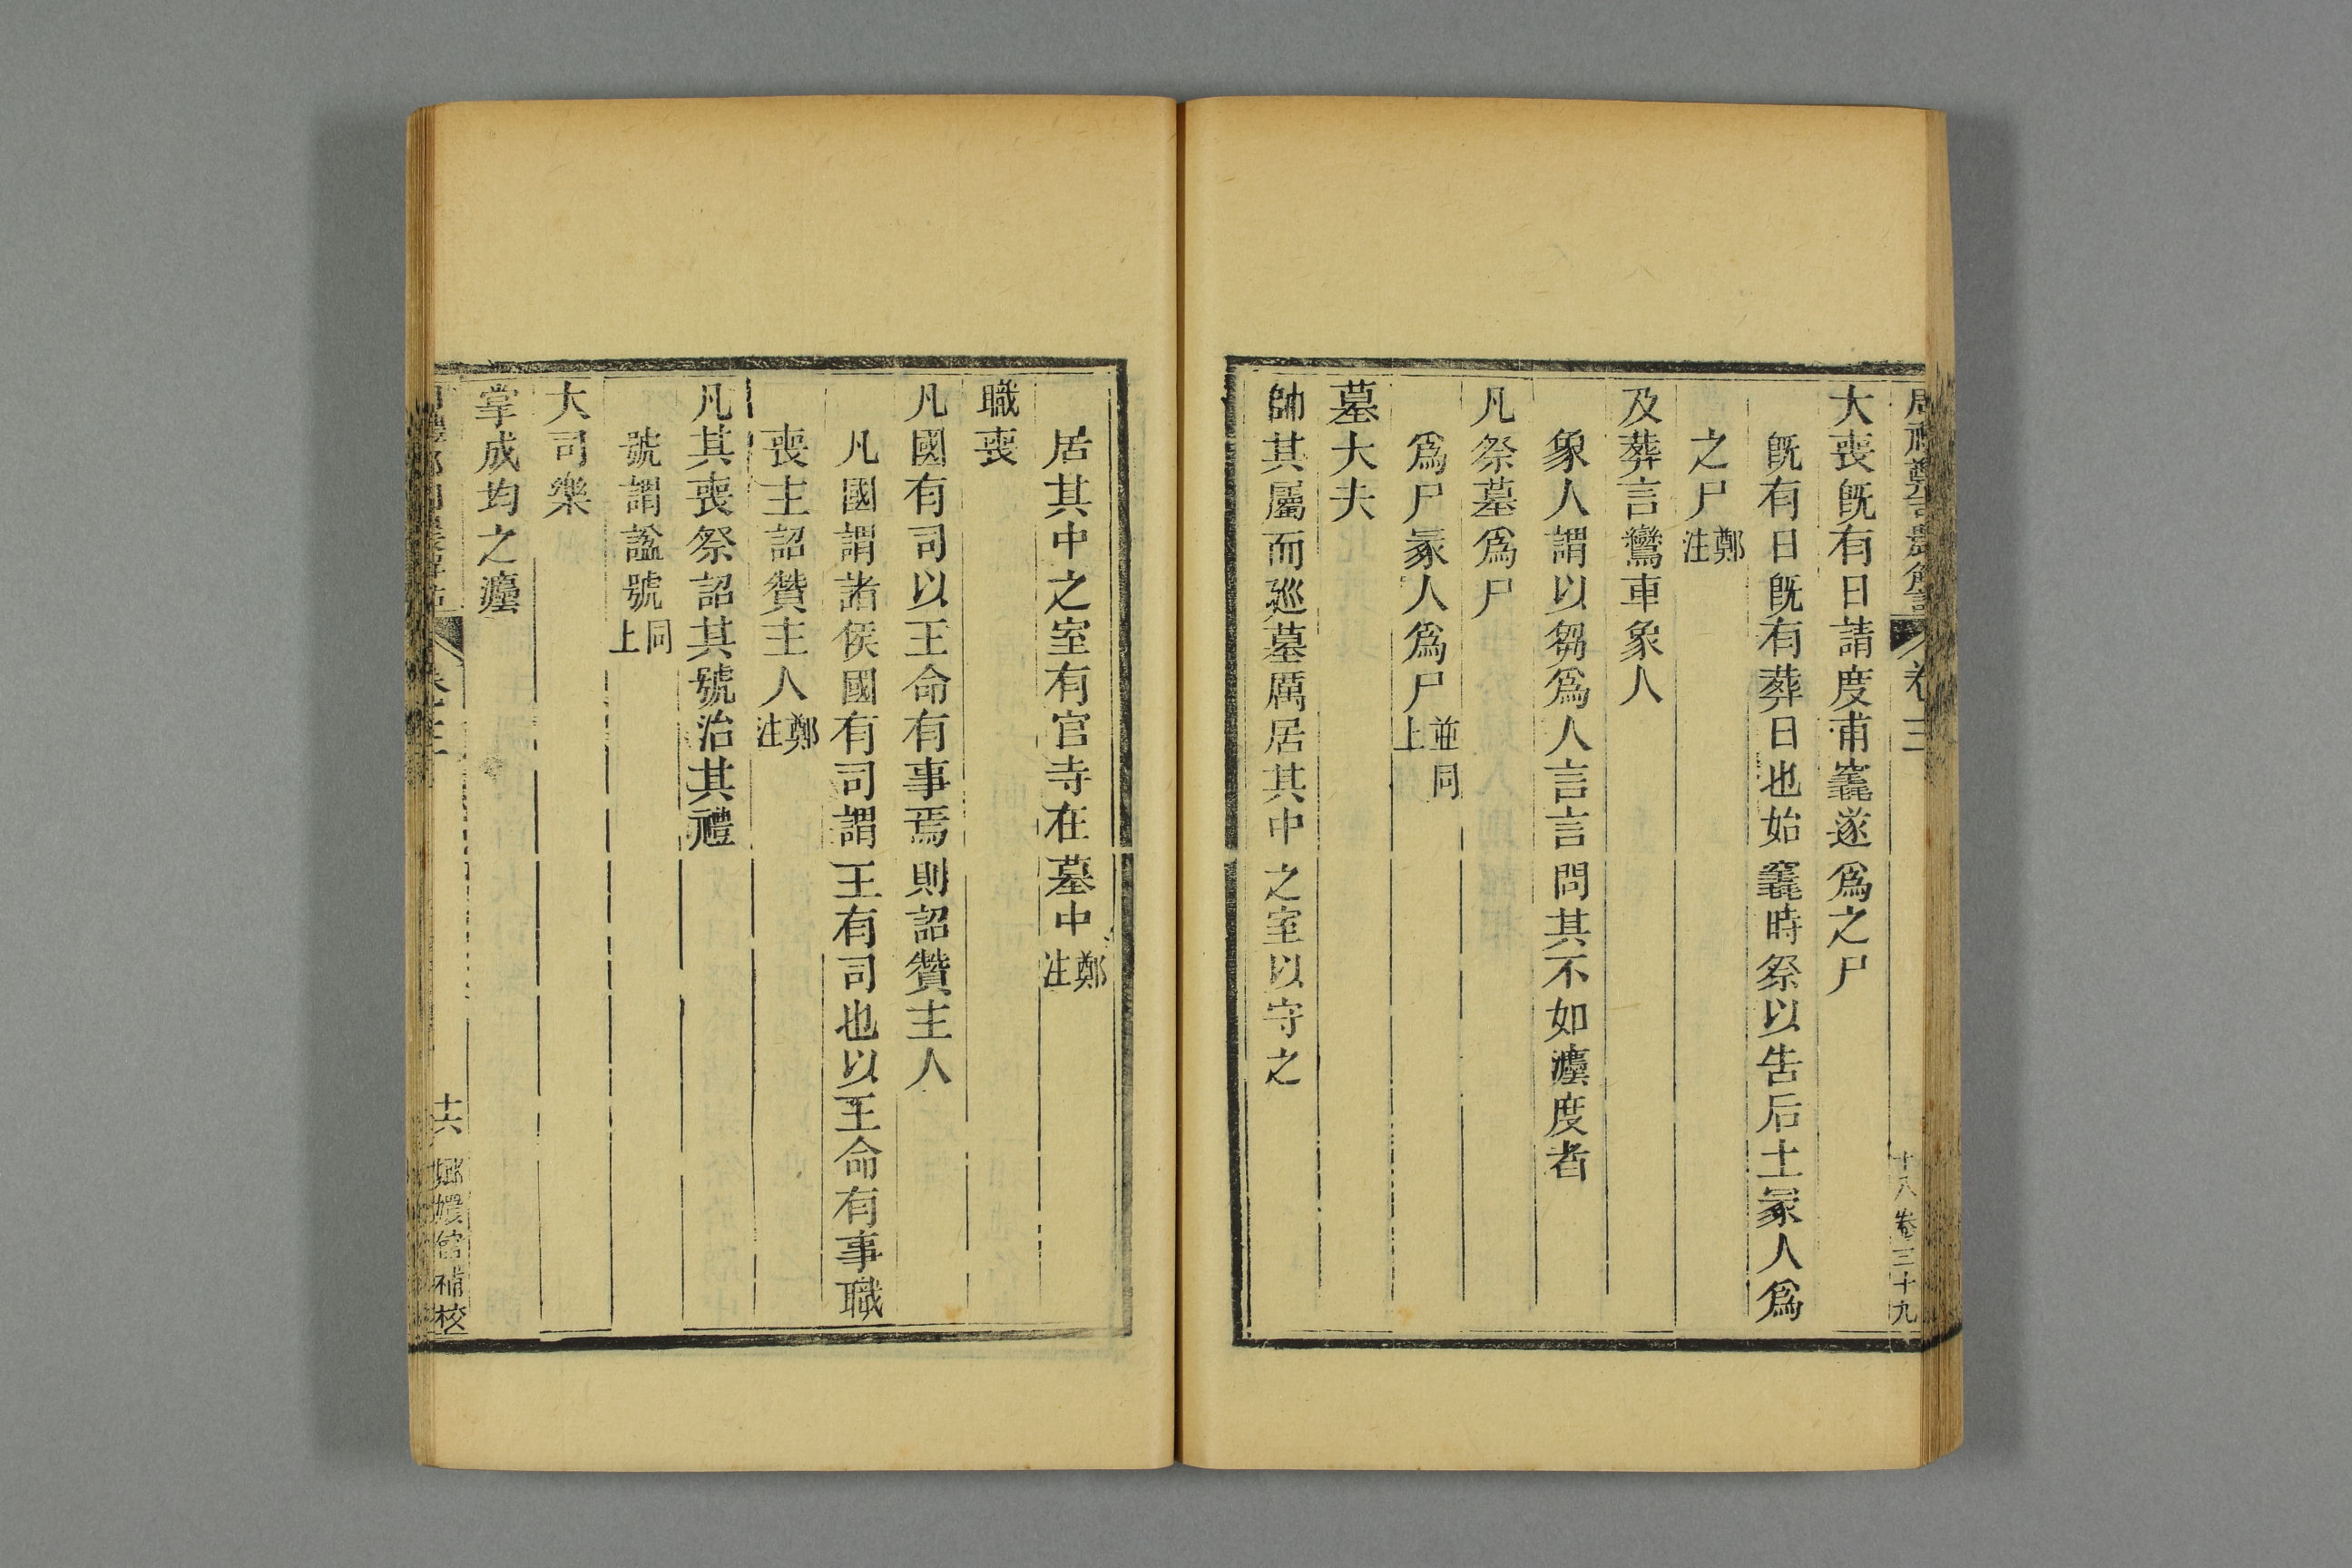 大喪旣有日請度甫竁遂爲之尸
旣有日旣有葬日也始竁時祭以告后土冢人爲
之尸鄭注
及葬言鸞車象人
象人謂以芻爲人言言問其不如灋度者
凡祭墓爲尸
爲尸冢人爲尸並同上
墓大夫
帥其屬而巡墓厲居其中之室以守之
十八 卷三十九
居其中之室有官寺在墓中鄭注
職喪
凡國有司以王命有事焉則詔贊主人
凡國謂諸侯國有司謂王有司也以王命有事職
喪主詔贊主人鄭注
凡其喪祭詔其號治其禮
號謂謚號同上
大司樂
掌成均之灋
十六 嫏嬛館補校